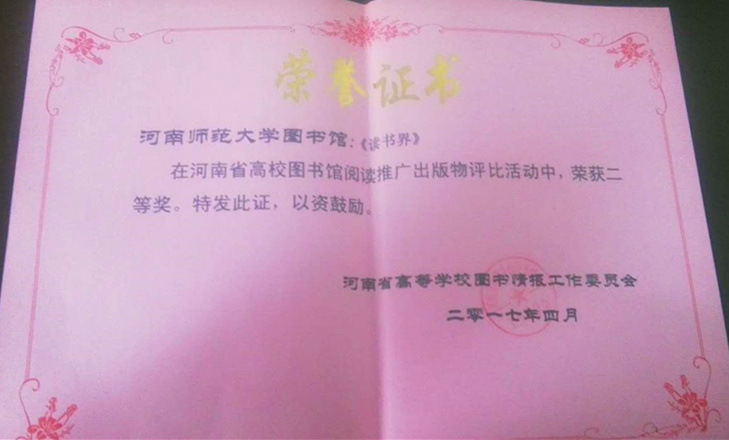 荣誉证书
河南师范大学图书馆：《读书界》
在河南省高校图书馆阅读推广出版物评比活动中，荣获二
等奖。特发此证，以资鼓励。
河南省高等学校图书情报工作委员会
二零一七年四月